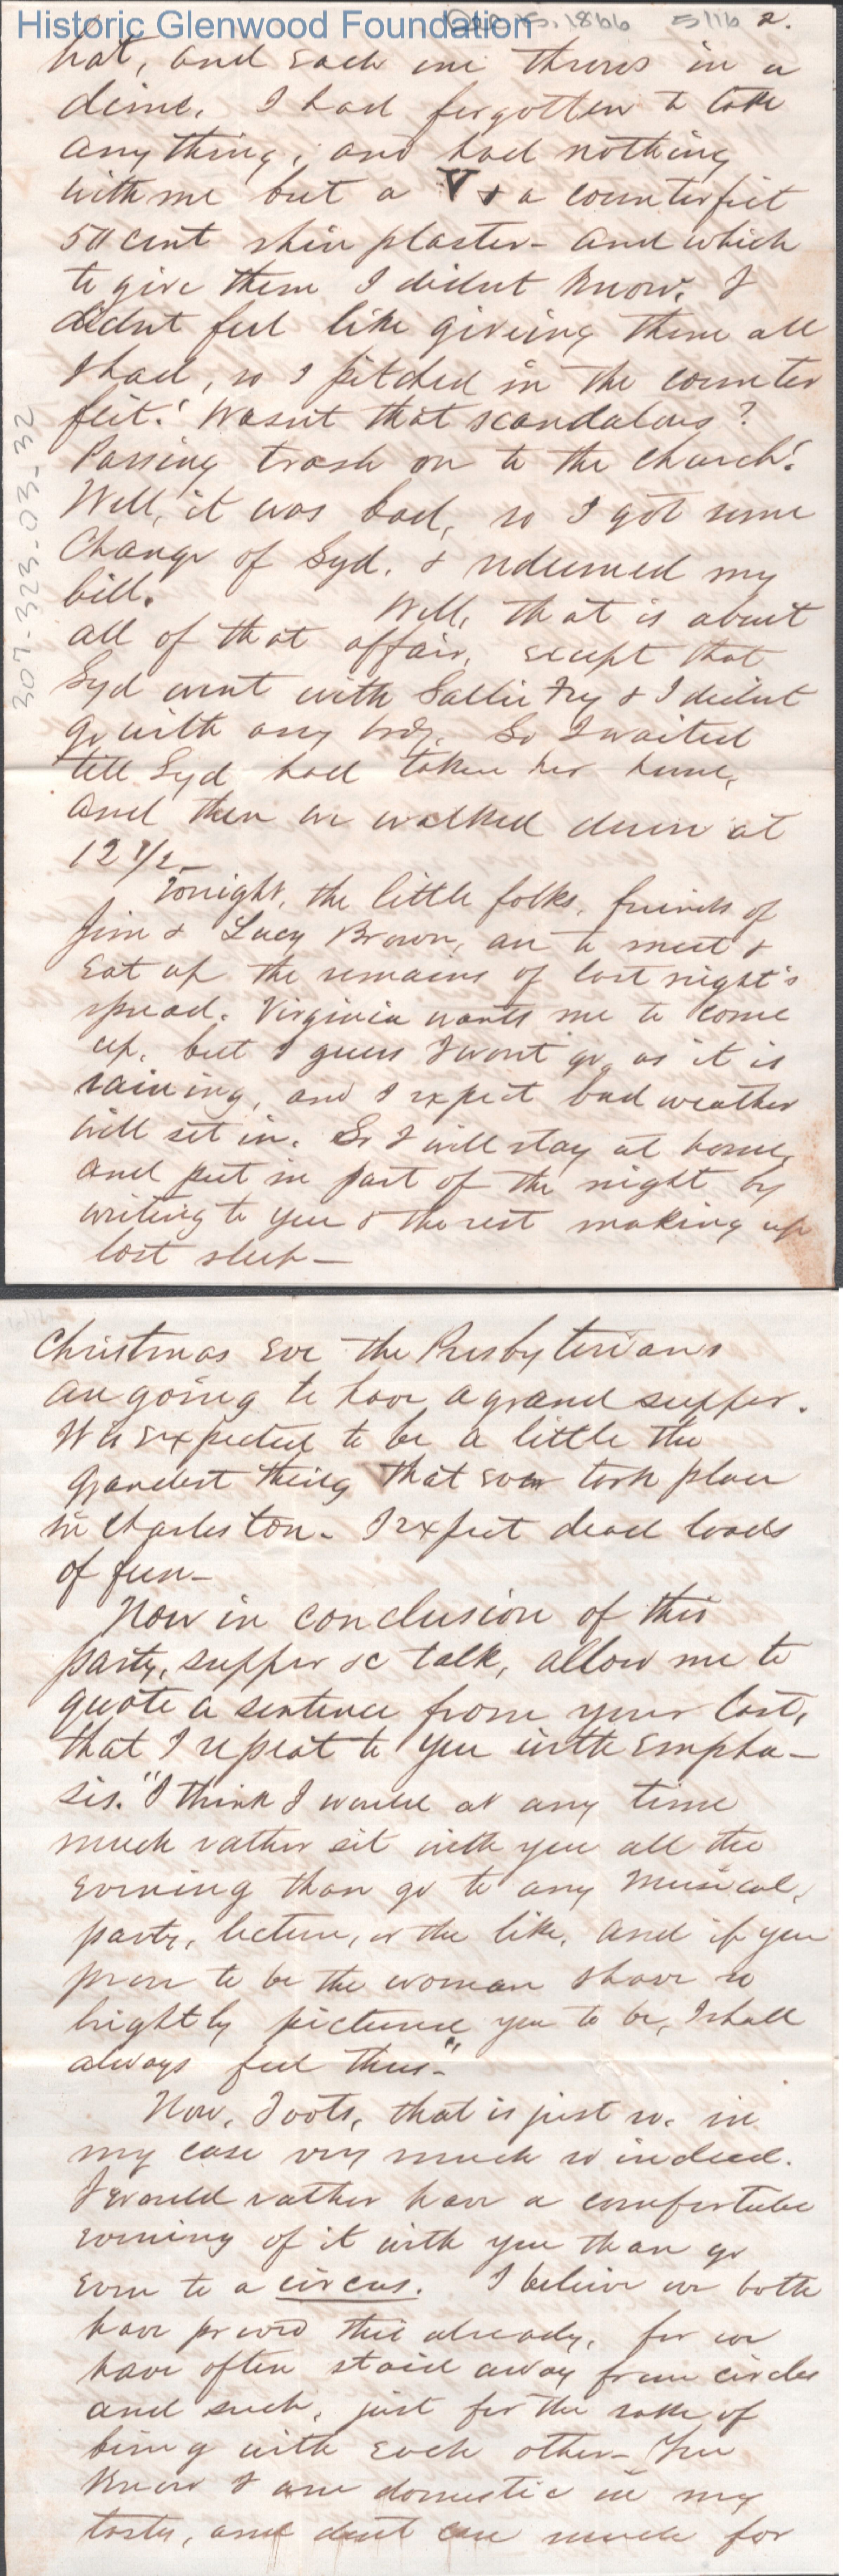 Historic Glenwood Foundation
Dec 15, 1866 5/16 2.
hat, and each one throws in a
dime. I had forgotten to take
anything, and had nothing
with me but a V & a counterfeit
50 cent shin plaster - and which
to give them I didnt know. I
didnt feel like giving them all
I had, so I pitched in the counter
feit! Wasnt that scandalous?
Passing trash on to the church!
Well, it was bad, so I got some
change of Syd. & redeemed my
bill.
Well, that is about
all of that affair, except that
Syd went with Sallie Fry & I didnt
go with any body. So I waited
till Syd had taken her home,
and then we walked down at
12 1/2 -
Tonight, the little folks, friends of
Jim & Lucy Brown, are to meet &
eat up the remains of last night's
spread. Virginia wants me to come
up, but I guess I wont go, as it is
raining, and I expect bad weather
will set in. So I will stay at home,
and put in part of the night by
writing to you & the rest making up
lost sleep -
307-323-03-32
Christmas Eve the Presbyterians
are going to have a grand supper.
It is expected to be a little the
grandest thing that ever took place
in Charleston - I expect dead loads
of fun -
Now in conclusion of this
party, supper &c talk, allow me to
quote a sentence from your last,
that I repeat to you with empha-
sis. "I think I would at any time
much rather sit with you all the
evening than go to any musical,
party, lecture, or the like, and if you
prove to be the woman I have so
brightly pictured you to be, I shall
always feel thus" -
Now, Toots, that is just so, in
my case very much so indeed.
I would rather have a comfortable
evening of it with you than go
even to a circus. I believe we both
have proved this already, for we
have often staid away from circles
and such, just for the sake of
being with each other - You
know I am domestic in my
tastes, and dont care much for